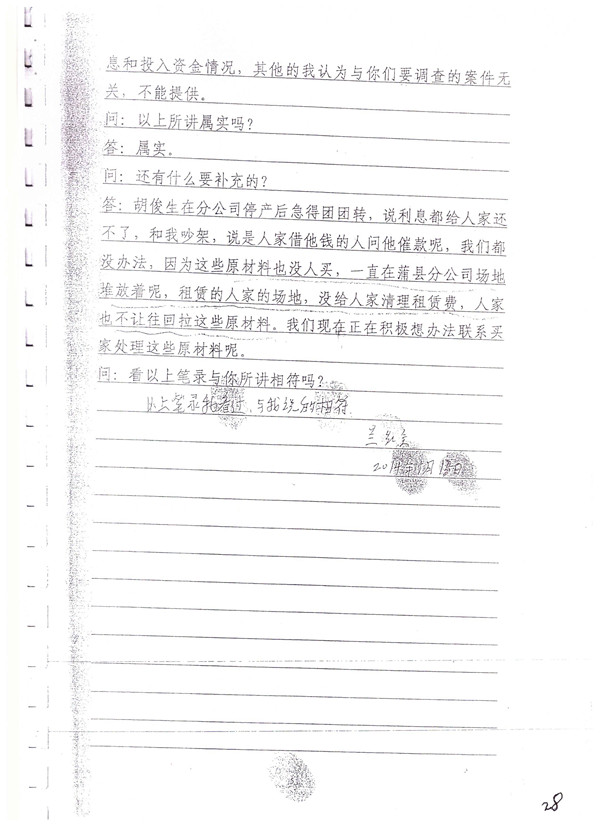 息和投入资金情况，其他的我认为与你们要调查的案件无
关，不能提供。
问：以上所讲属实吗？
答：属实。
问：还有什么要补充的？
答：胡俊生在分公司停产后急得团团转，说利息都给人家还
不了，和我吵架，说是人家借他钱的人问他催款呢，我们都
没办法，因为这些原材料也没人买，一直在蒲县分公司场地
堆放着呢，租赁的人家的场地，没给人家清理租赁费，人家
也不让往回拉这些原材料。我们现在正在积极想办法联系买
家处理这些原材料呢。
问：看以上笔录与你所讲相符吗？
以上笔录我看过，与我说的相符
2014年
28